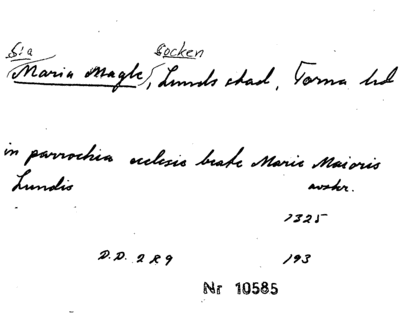 S:a socken
Maria Magle, Lunds stad, Torna hd
in parrochia ecclesie beate Marie Maioris
Lundis avskr.
1325
D.D. 2 R 9 193
Nr 10585